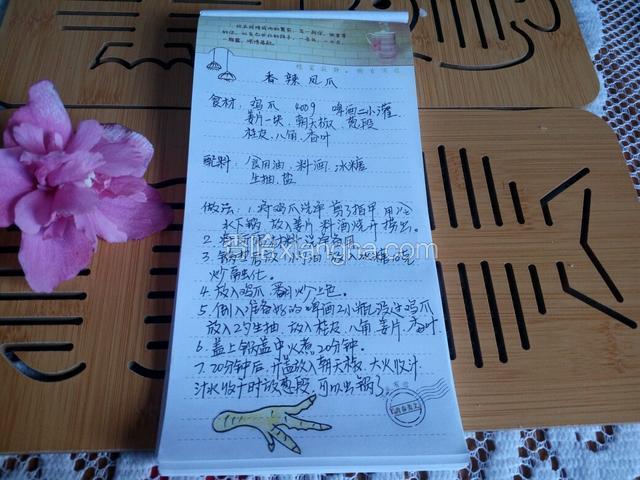 香辣凤爪
食材：鸡爪 400g 啤酒二小灌
姜片一块、朝天椒 葱段
桂皮、八角、香叶
配料：食用油、料酒、冰糖
生抽、盐
做法：1. 将鸡爪洗净 剪了指甲 用冷
水下锅 放入姜片 料酒烧开捞出。
2.
3. 锅 放入冰糖
炒 融化。
4. 放入鸡爪 翻炒上色。
5. 倒入准备好的啤酒2小瓶没过鸡爪
放入2勺生抽、放入桂皮、八角、姜片、香叶
6. 盖上锅盖中火煮20分钟。
7. 20分钟后、开盖放入朝天椒、大火收汁
汁水收干时放葱段、可以出锅了。
香哈xiangha.com